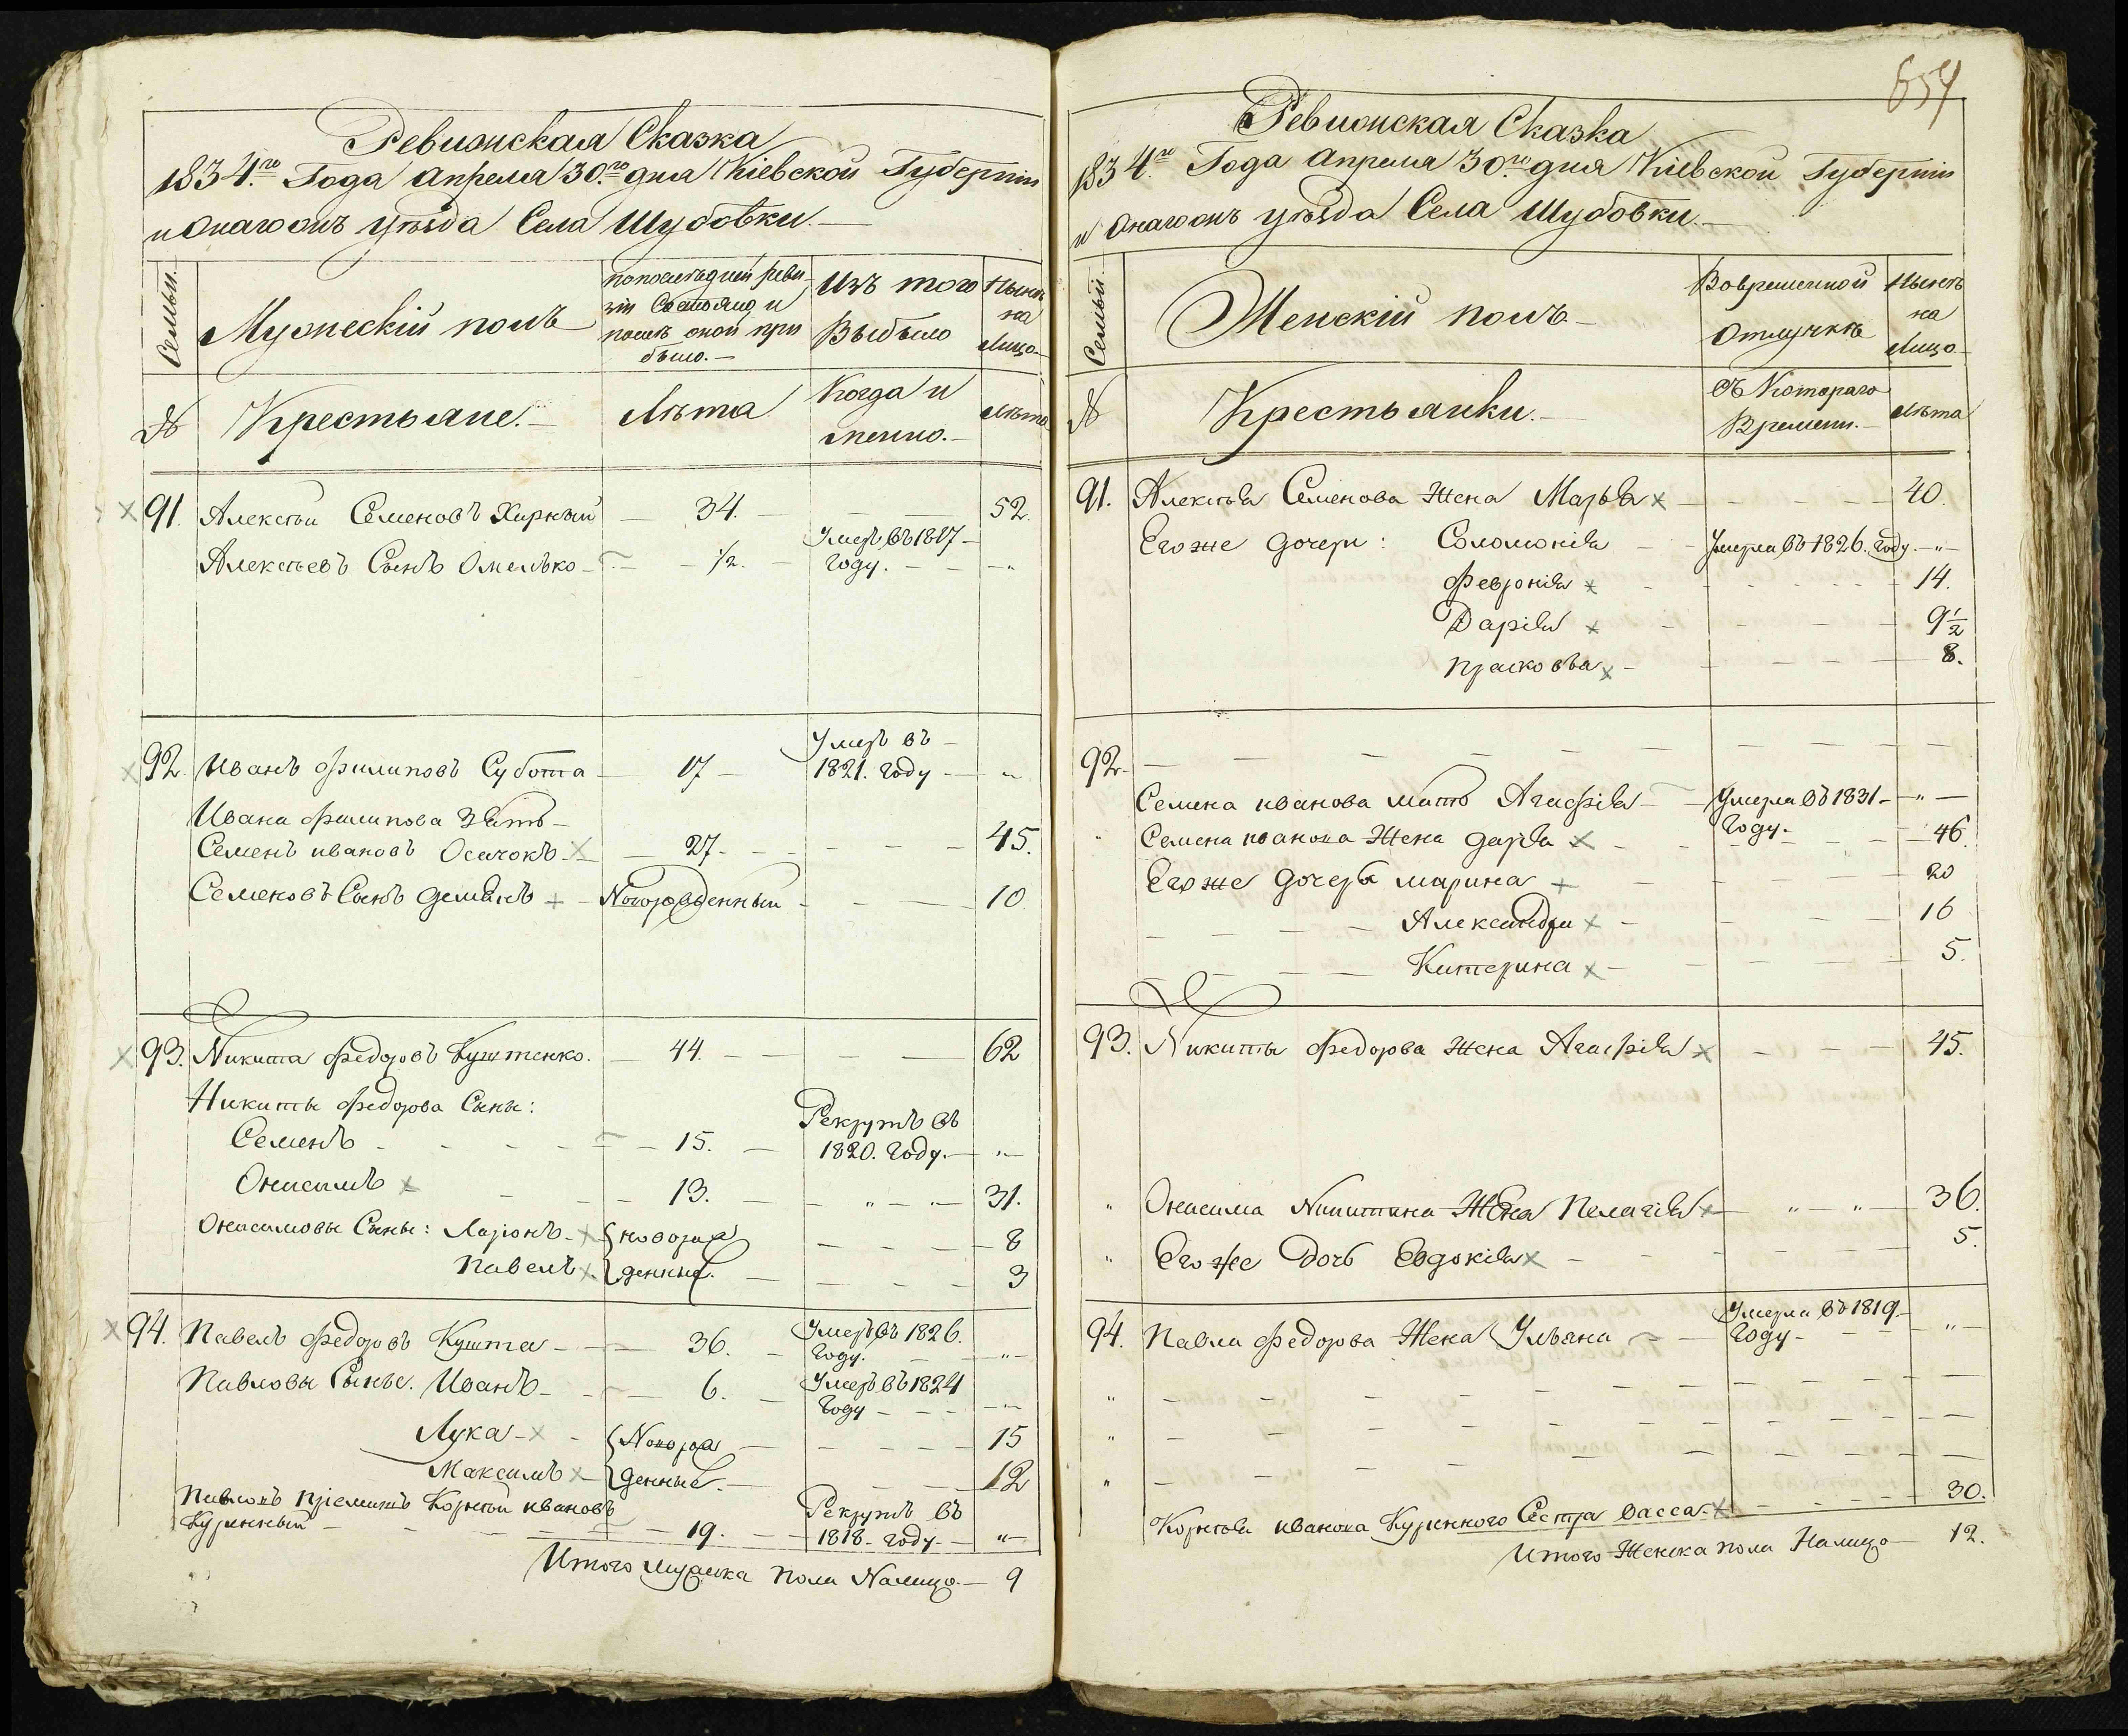 Ревизская Сказка
1834.го Года апреля 30.го дня Кіевской Губерніи
и Онагожъ уѣзда Села Шубовки.—
Семьи.
Мужескій полъ
по последней реви
зіи Состояло и
послѣ оной при
было.—
Изъ того
Выбыло
Нынѣ
на
Лицо
№
Крестьяне.—
Лѣта
Когда и
менно.—
Лѣта
91.
Алексѣй Семеновъ Хирный — 34. — 52.
Алексѣевъ Сынъ Омелько — 1/2. — Умеръ въ 1817
году. — "
92.
Иванъ Филиповъ Субота — 17 — Умеръ въ
1821. году — "
Ивана Филипова Зять
Семенъ ивановъ Осачокъ — 27. — 45.
Семеновъ Сынъ Демянъ — Новорожденный — 10
93.
Никита Федоровъ Куштенко. — 44. — 62
Никиты Федорова Сыны:
Семенъ — 15. — Рекрутъ въ
1820. году. — "
Онисимъ — 13. — " — " — 31.
Онисимовы Сыны: Ларіонъ — новорож — 8
Павелъ — денные. — 3
94.
Павелъ Федоровъ Кушта — 36. — Умеръ въ 1826.
году. — "
Павловы Сыны. Иванъ — 6. — Умеръ въ 1824
году — "
Лука — Новорож — 15
Максимъ — денные. — 12
Павловъ пріемышъ Корнѣй ивановъ
Куринный — 19. — Рекрутъ въ
1818. году. — "
Итого мужеска пола Налицо — 9
657
Ревизская Сказка
1834.го Года апреля 30.го дня Кіевской Губерніи
и Онагожъ уѣзда Села Шубовки.—
Семьи
Женскій полъ
Во временной
Отлучкѣ
Нынѣ
на
Лицо
№
Крестьянки.—
Съ Котораго
Времени.—
Лѣта
91. Алексѣя Семенова Жена Марья — 40.
Его же дочери: Соломонія — Умерла въ 1826. году. — "
Февронія — 14.
Дарія — 9 1/2
Прасковья — 8.
92.
Семена иванова мать Агафія — Умерла въ 1831 — "
году.
Семена иванова Жена дарья — 46.
Его же дочерь марина — 20
Александра — 16
Катерина — 5.
93. Никиты Федорова Жена Агафія — 45.
" Онисима Никитина Жена Пелагія — " — " — 36.
" Его же Дочь Евдокія — 5.
94. Павла Федорова Жена Ульяна — Умерла въ 1819
году — "
Корнѣя иванова Куринного Сестра Васса. — 30.
Итого Женска пола Налицо — 12.